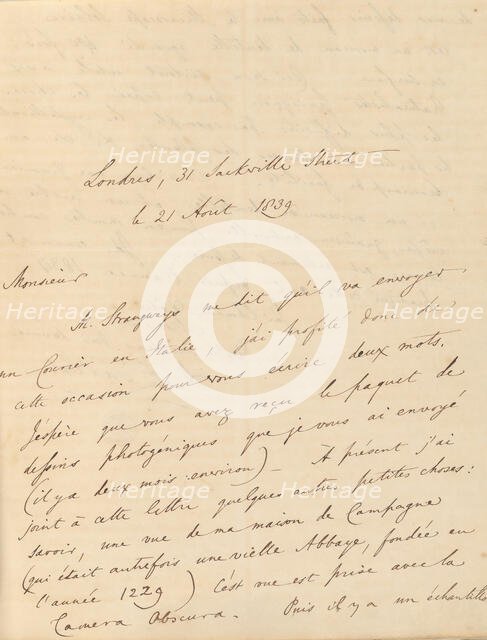 Londres, 31 Sackville Street
le 21 Août 1839
Monsieur
Mr. Strangways me dit qu'il va envoyer
un Courier en Italie, j'ai profité donc de
cette occasion pour vous écrire deux mots.
J'éspère que vous avez reçu le paquet de
dessins photogéniques que je vous ai envoyé
(il y a deux mois environ) – À présent j'ai
joint à cette lettre quelques autres petites choses:
savoir, une vue de ma maison de Campagne
(qui était autrefois une vielle Abbaye, fondée en
l'année 1229) C'ést vue est prise avec la
Camera Obscura. Puis il y a un échantillon
Heritage
Heritage
Heritage
Heritage
Heritage
Heritage
Heritage
Heritage
C